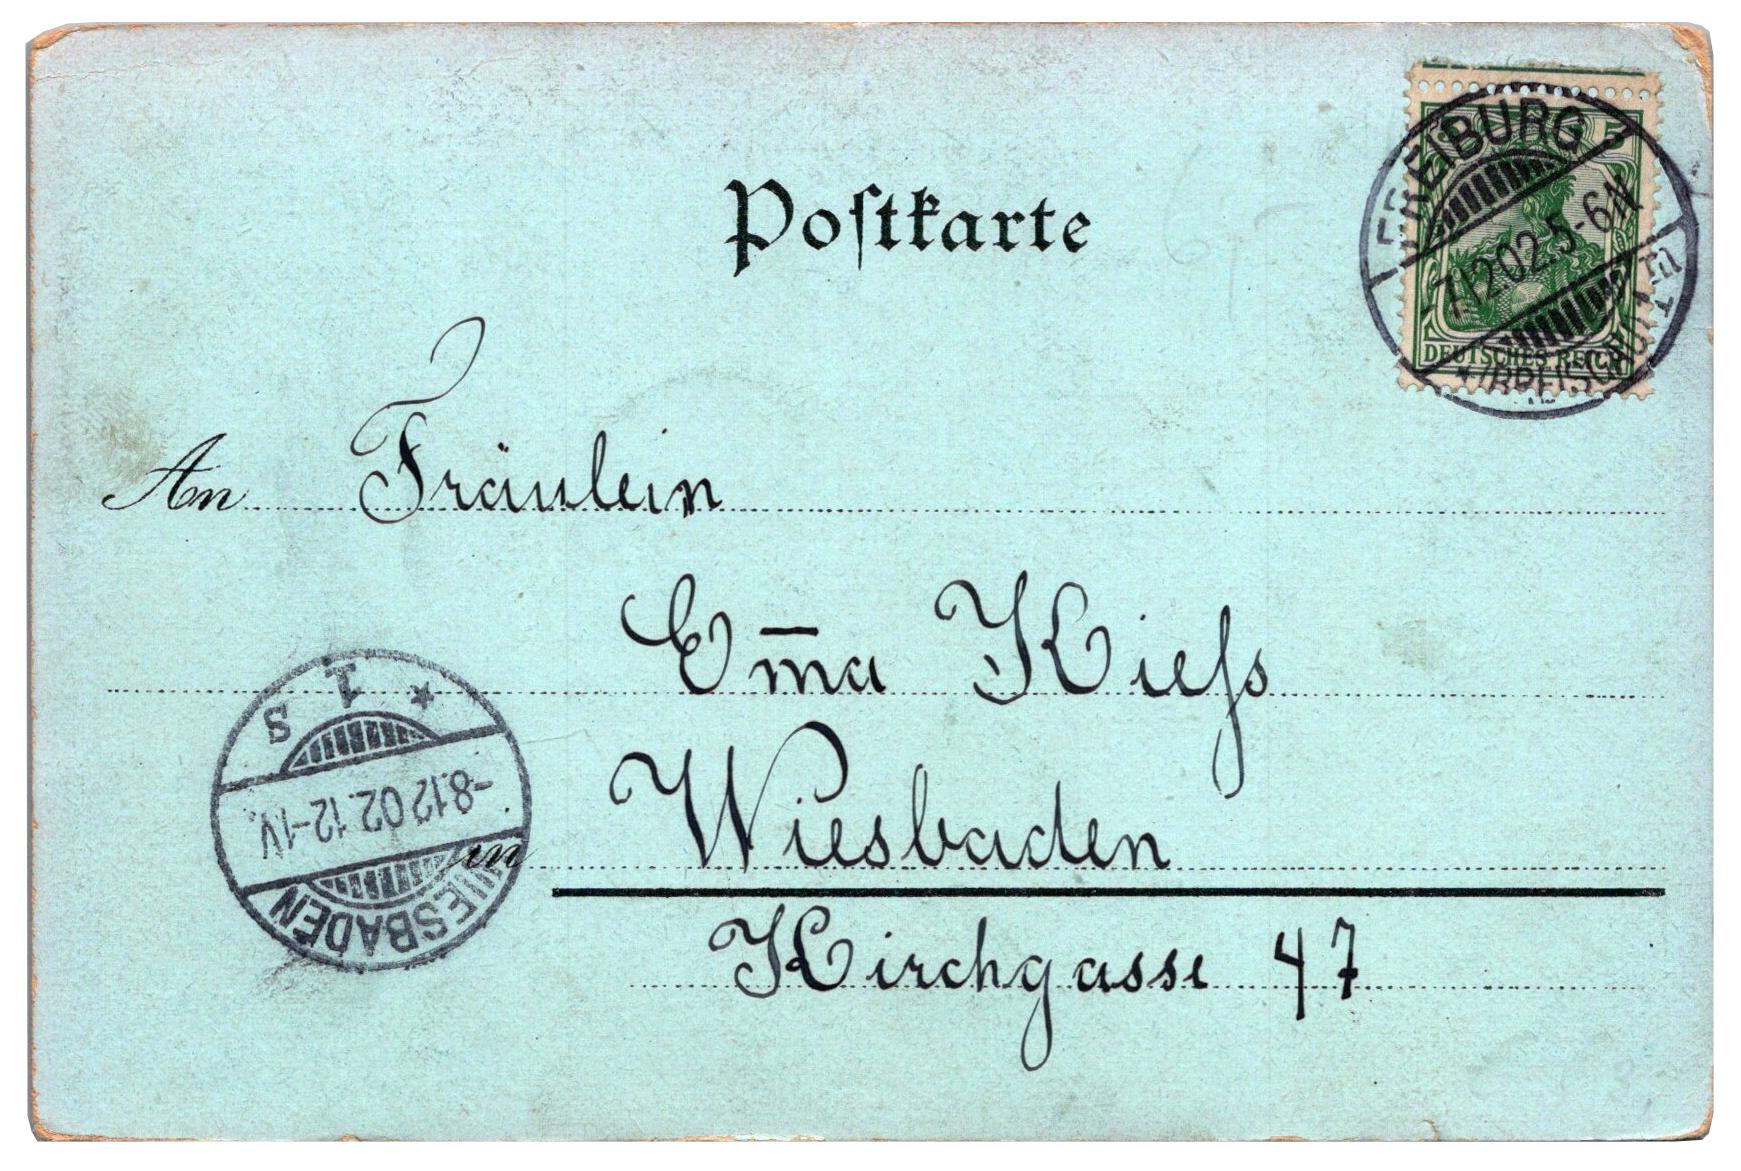 Postkarte
5
FREIBURG
7.12.02.5-6N
DEUTSCHES REICH
An Fräulein
Em̅a Kiess
1
S
-8.12.02.12-1V.
WIESBADEN
in Wiesbaden
Kirchgasse 47